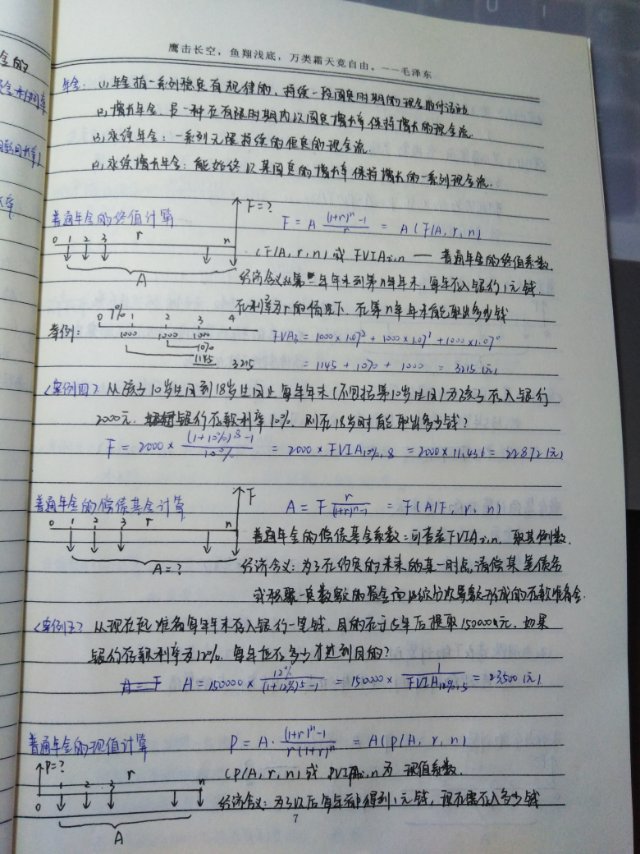 鹰击长空,鱼翔浅底,万类霜天竞自由。——毛泽东
年金: (1) 年金指一系列稳定有规律的,持续一段固定时期的现金收付活动
(2) 增长年金:是一种在有限时期内以固定增长率保持增长的现金流
(3) 永续年金:一系列无限持续的恒定的现金流
(4) 永续增长年金:能始终以某固定的增长率保持增长的一系列现金流.
普通年金的终值计算
F=?
0 1 2 3 r n
A
F = A (1+r)^n -1 / r = A (F/A, r, n)
(F/A, r, n) 或 FVIA r,n —— 普通年金的终值系数.
经济含义:从第一年年末到第n年年末,每年存入银行1元钱.
在利率为r的情况下,在第n年年末能取出多少钱
举例:
0 7% 1 2 3 4
1000 1000 1000
1070
1145
3215
FVA3 = 1000×1.07² + 1000×1.07¹ + 1000×1.07⁰
= 1145 + 1070 + 1000 = 3215 (元)
<案例四> 从孩子10岁生日到18岁生日止每年年末(不包括第10岁生日)为孩子存入银行
2000元. 银行存款利率10%. 则在18岁时能取出多少钱?
F = 2000 × (1+10%)^8 -1 / 10% = 2000 × FVIA10%,8 = 2000 × 11.436 = 22872 (元)
普通年金的偿债基金计算
F
0 1 2 3 r n
A=?
A = F r / (1+r)^n -1 = F (A/F, r, n)
普通年金的偿债基金系数:可查表FVIA r,n. 取其倒数.
经济含义:为了在约定的未来的某一时点,清偿某笔债务
或积聚一定数额的资金而必须分次等额形成的存款准备金.
<案例五> 从现在起准备每年年末存入银行一笔钱. 目的在于5年后提取150000元. 如果
银行存款利率为12%. 每年应存多少才达到目的?
A = F A = 150000 × 12% / (1+12%)^5 -1 = 150000 × 1 / FVIA12%,5 = 23500 (元)
普通年金的现值计算
P=?
0 1 2 3 n
A
P = A · (1+r)^n -1 / r(1+r)^n = A (P/A, r, n)
(P/A, r, n) 或 PVIA r,n 为 现值系数.
经济含义:为了以后每年都得到1元钱,现在需存入多少钱
7